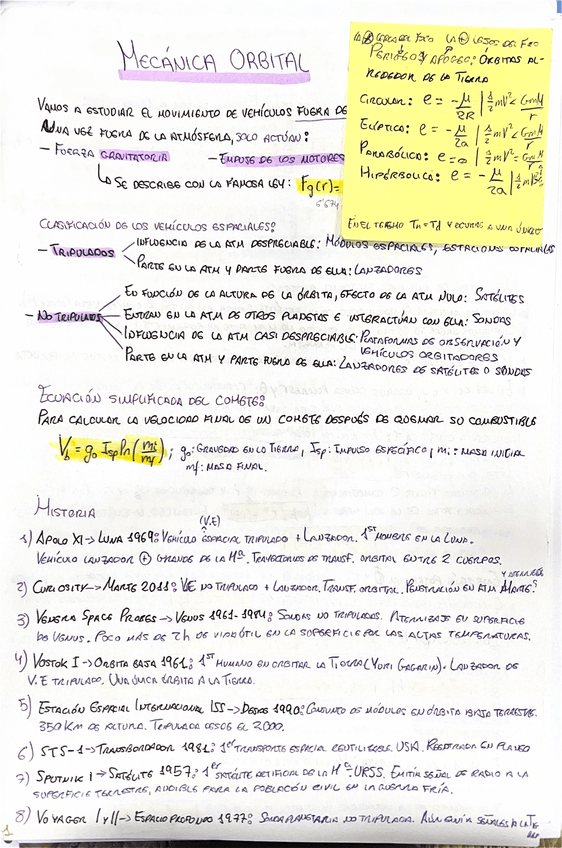 MECÁNICA ORBITAL
VAMOS A ESTUDIAR EL MOVIMIENTO DE VEHÍCULOS FUERA DE
UNA VEZ FUERA DE LA ATMÓSFERA, SOLO ACTÚAN:
- FUERZA GRAVITATORIA - EMPUJE DE LOS MOTORES
SE DESCRIBE CON LA FAMOSA LEY: Fg(r)=
CLASIFICACIÓN DE LOS VEHÍCULOS ESPACIALES:
- TRIPULADOS
INFLUENCIA DE LA ATM DESPRECIABLE: MÓDULOS ESPACIALES, ESTACIONES ESPACIALES
PARTE EN LA ATM Y PARTE FUERA DE ELLA: LANZADORES
- NO TRIPULADOS
EN FUNCIÓN DE LA ALTURA DE LA ÓRBITA, EFECTO DE LA ATM NULO: SATÉLITES
ENTRAN EN LA ATM DE OTROS PLANETAS E INTERACTÚAN CON ELLA: SONDAS
INFLUENCIA DE LA ATM CASI DESPRECIABLE: PLATAFORMAS DE OBSERVACIÓN Y
VEHÍCULOS ORBITADORES
PARTE EN LA ATM Y PARTE FUERA DE ELLA: LANZADORES DE SATÉLITES O SONDAS
ECUACIÓN SIMPLIFICADA DEL COHETE:
PARA CALCULAR LA VELOCIDAD FINAL DE UN COHETE DESPUÉS DE QUEMAR SU COMBUSTIBLE
Vb = g0 Isp ln(mi/mf); g0: GRAVEDAD EN LA TIERRA, Isp: IMPULSO ESPECÍFICO, mi: MASA INICIAL
mf: MASA FINAL.
HISTORIA
(V.E)
1) APOLO XI → LUNA 1969: VEHÍCULO ESPACIAL TRIPULADO + LANZADOR. 1ST HOMBRE EN LA LUNA.
VEHÍCULO LANZADOR ⊕ GRANDE DE LA Hª. TRAYECTORIAS DE TRANSF. ORBITAL ENTRE 2 CUERPOS.
2) CURIOSITY → MARTE 2011: VE NO TRIPULADO + LANZADOR. TRANSF. ORBITAL. PENETRACIÓN EN ATM MARTE
3) VENERA SPACE PROBES → VENUS 1961-1984: SONDAS NO TRIPULADAS. ATERRIZAJE EN SUPERFICIE
DE VENUS. POCO MÁS DE 2h DE VIDA ÚTIL EN LA SUPERFICIE POR LAS ALTAS TEMPERATURAS.
4) VOSTOK I → ÓRBITA BAJA 1961: 1ST HUMANO EN ORBITAR LA TIERRA (YURI GAGARIN). LANZADOR DE
V.E TRIPULADO. UNA ÚNICA ÓRBITA A LA TIERRA.
5) ESTACIÓN ESPACIAL INTERNACIONAL ISS → DESDE 1990: CONJUNTO DE MÓDULOS EN ÓRBITA BAJA TERRESTRE.
350 KM DE ALTURA. TRIPULADA DESDE EL 2000.
6) STS-1 → TRANSBORDADOR 1981: 1er TRANSPORTE ESPACIAL REUTILIZABLE. USA. REENTRADA EN PLANEO
7) SPUTNIK I → SATÉLITE 1957: 1er SATÉLITE ARTIFICIAL DE LA Hª. URSS. EMITÍA SEÑAL DE RADIO A LA
SUPERFICIE TERRESTRE, AUDIBLE PARA LA POBLACIÓN CIVIL EN LA GUERRA FRÍA.
8) VOYAGER I Y II → ESPACIO PROFUNDO 1977: SONDA PLANETARIA NO TRIPULADA. AÚN ENVÍA SEÑALES A LA
1
PERIGEO Y APOGEO: ÓRBITAS AL-
REDEDOR DE LA TIERRA
CIRCULAR: e = -μ/2R | ½mV² < GmM/r
ELÍPTICA: e = -μ/2a | ½mV² < GmM/r
PARABÓLICA: e = 0 | ½mV² = GmM/r
HIPÉRBOLICA: e = -μ/2a